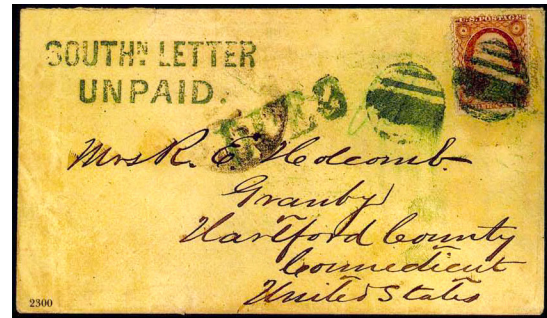 SOUTHN. LETTER
UNPAID.
U.S. POSTAGE
DUE 3
Mrs R. E. Holcomb.
Granby
Hartford County
Connecticut
United States
2300